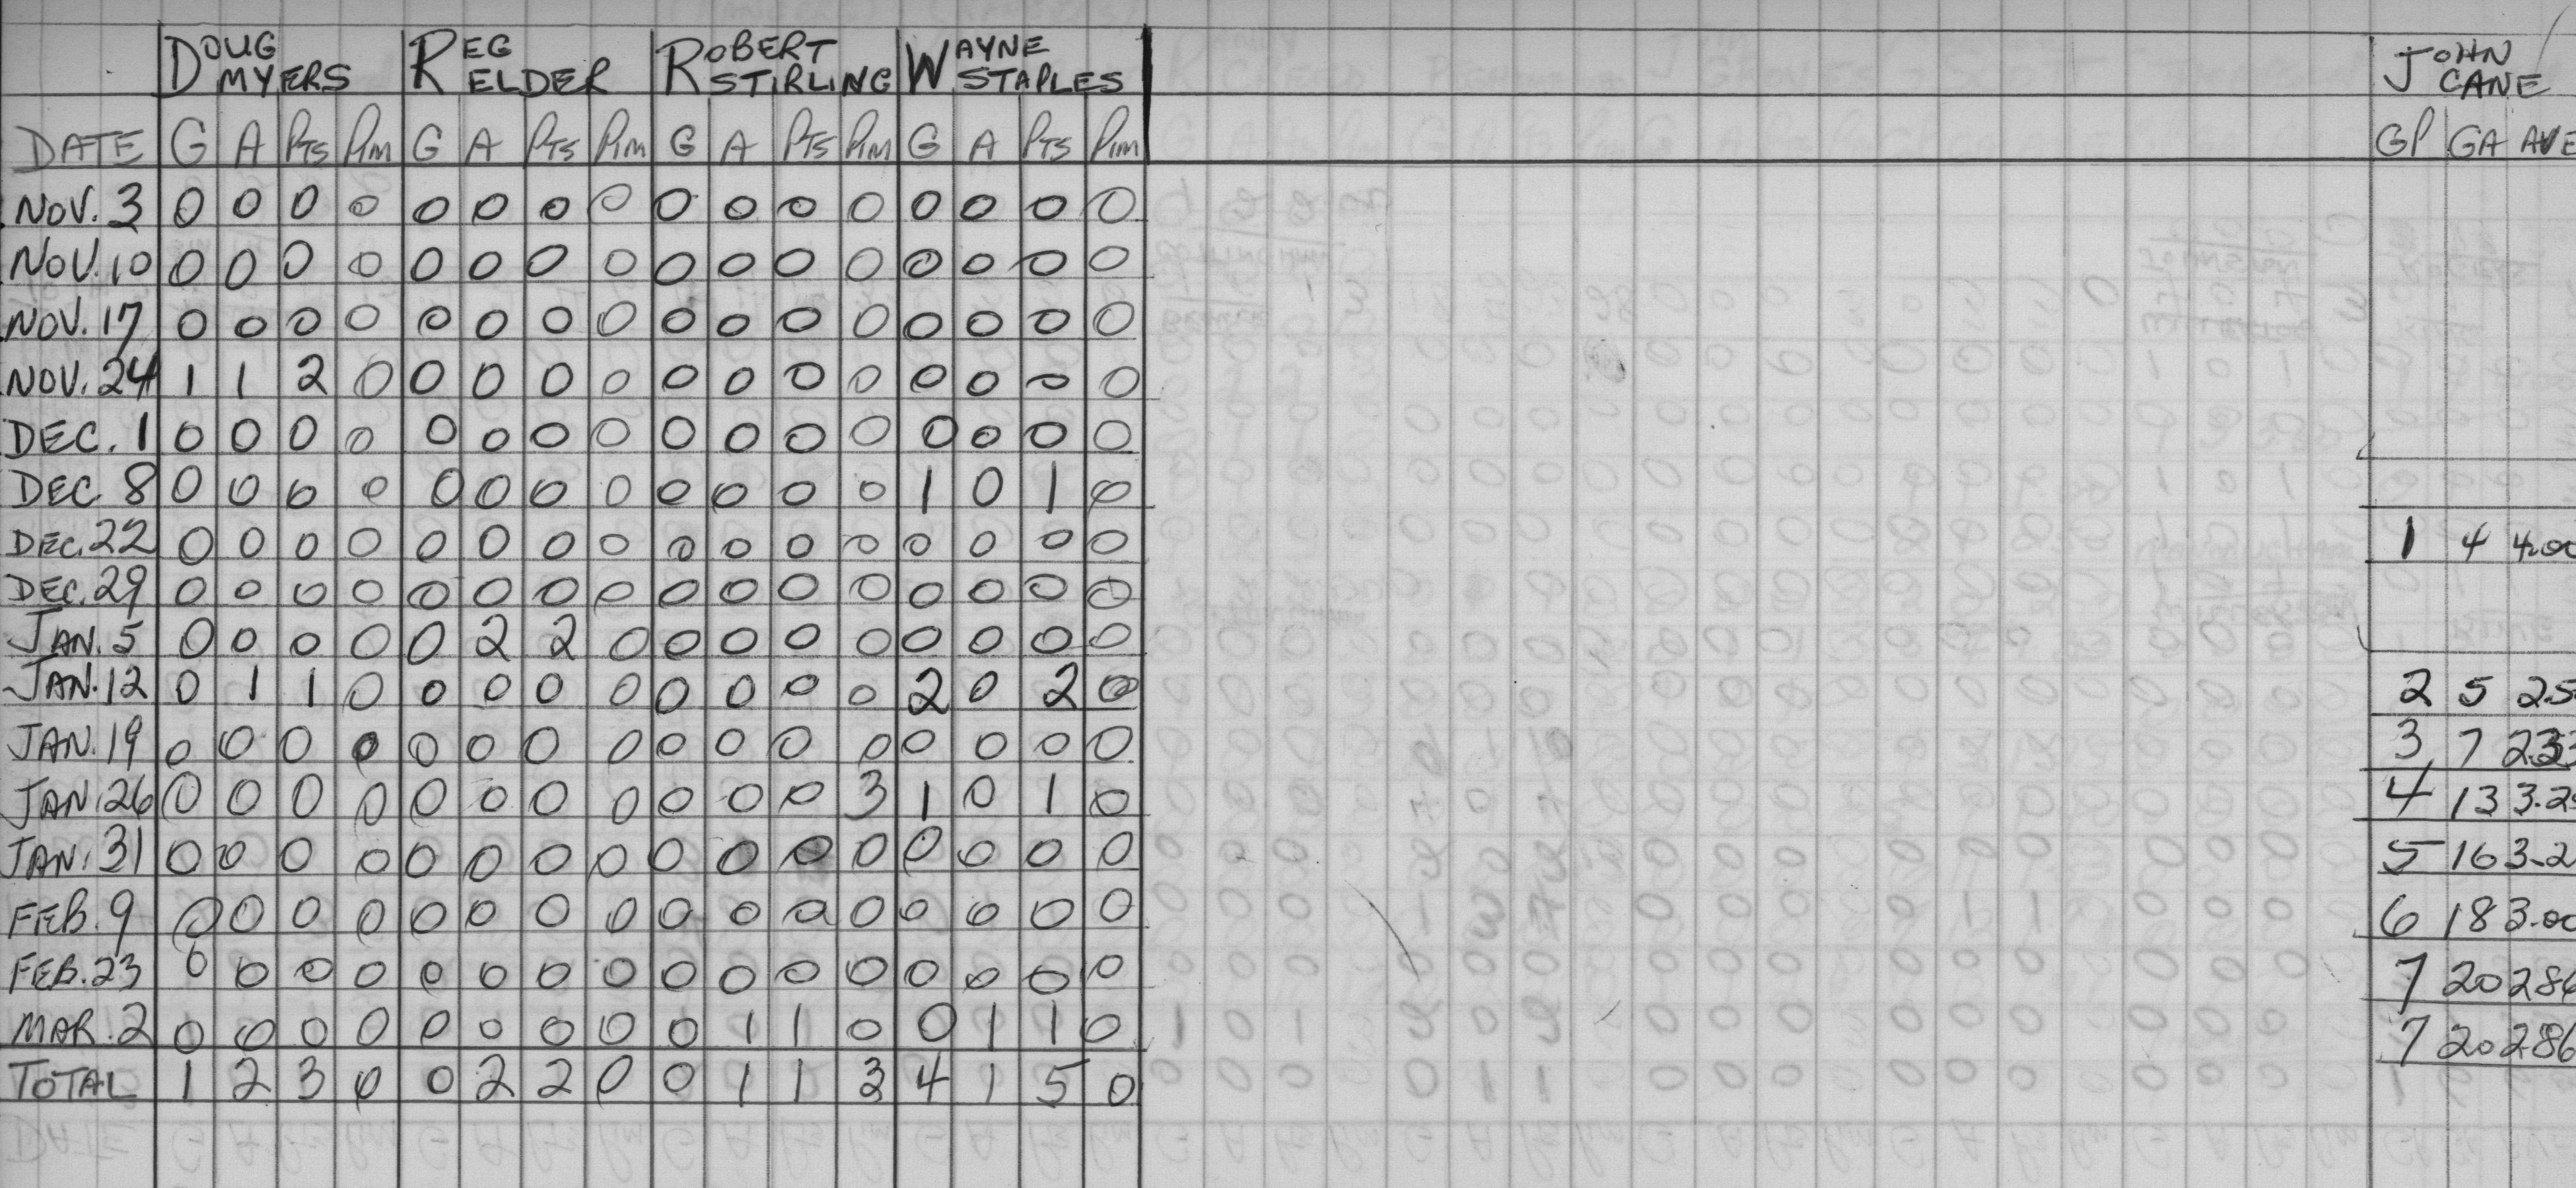 DOUG MYERS REG ELDER ROBERT STIRLING WAYNE STAPLES JOHN CANE
DATE G A PTS PIM G A PTS PIM G A PTS PIM G A PTS PIM GP GA AVE
NOV. 3 0 0 0 0 0 0 0 0 0 0 0 0 0 0 0 0
NOV. 10 0 0 0 0 0 0 0 0 0 0 0 0 0 0 0 0
NOV. 17 0 0 0 0 0 0 0 0 0 0 0 0 0 0 0 0
NOV. 24 1 1 2 0 0 0 0 0 0 0 0 0 0 0 0 0
DEC. 1 0 0 0 0 0 0 0 0 0 0 0 0 0 0 0 0
DEC. 8 0 0 0 0 0 0 0 0 0 0 0 0 1 0 1 0
DEC. 22 0 0 0 0 0 0 0 0 0 0 0 0 0 0 0 0 1 4 4.00
DEC. 29 0 0 0 0 0 0 0 0 0 0 0 0 0 0 0 0
JAN. 5 0 0 0 0 0 2 2 0 0 0 0 0 0 0 0 0
JAN. 12 0 1 1 0 0 0 0 0 0 0 0 0 2 0 2 0 2 5 2.5
JAN. 19 0 0 0 0 0 0 0 0 0 0 0 0 0 0 0 0 3 7 2.33
JAN. 26 0 0 0 0 0 0 0 0 0 0 0 3 1 0 1 0 4 13 3.25
JAN. 31 0 0 0 0 0 0 0 0 0 0 0 0 0 0 0 0 5 16 3.2
FEB. 9 0 0 0 0 0 0 0 0 0 0 0 0 0 0 0 0 6 18 3.00
FEB. 23 0 0 0 0 0 0 0 0 0 0 0 0 0 0 0 0 7 20 286
MAR. 2 0 0 0 0 0 0 0 0 0 1 1 0 0 1 1 0 7 20 286
TOTAL 1 2 3 0 0 2 2 0 0 1 1 3 4 1 5 0